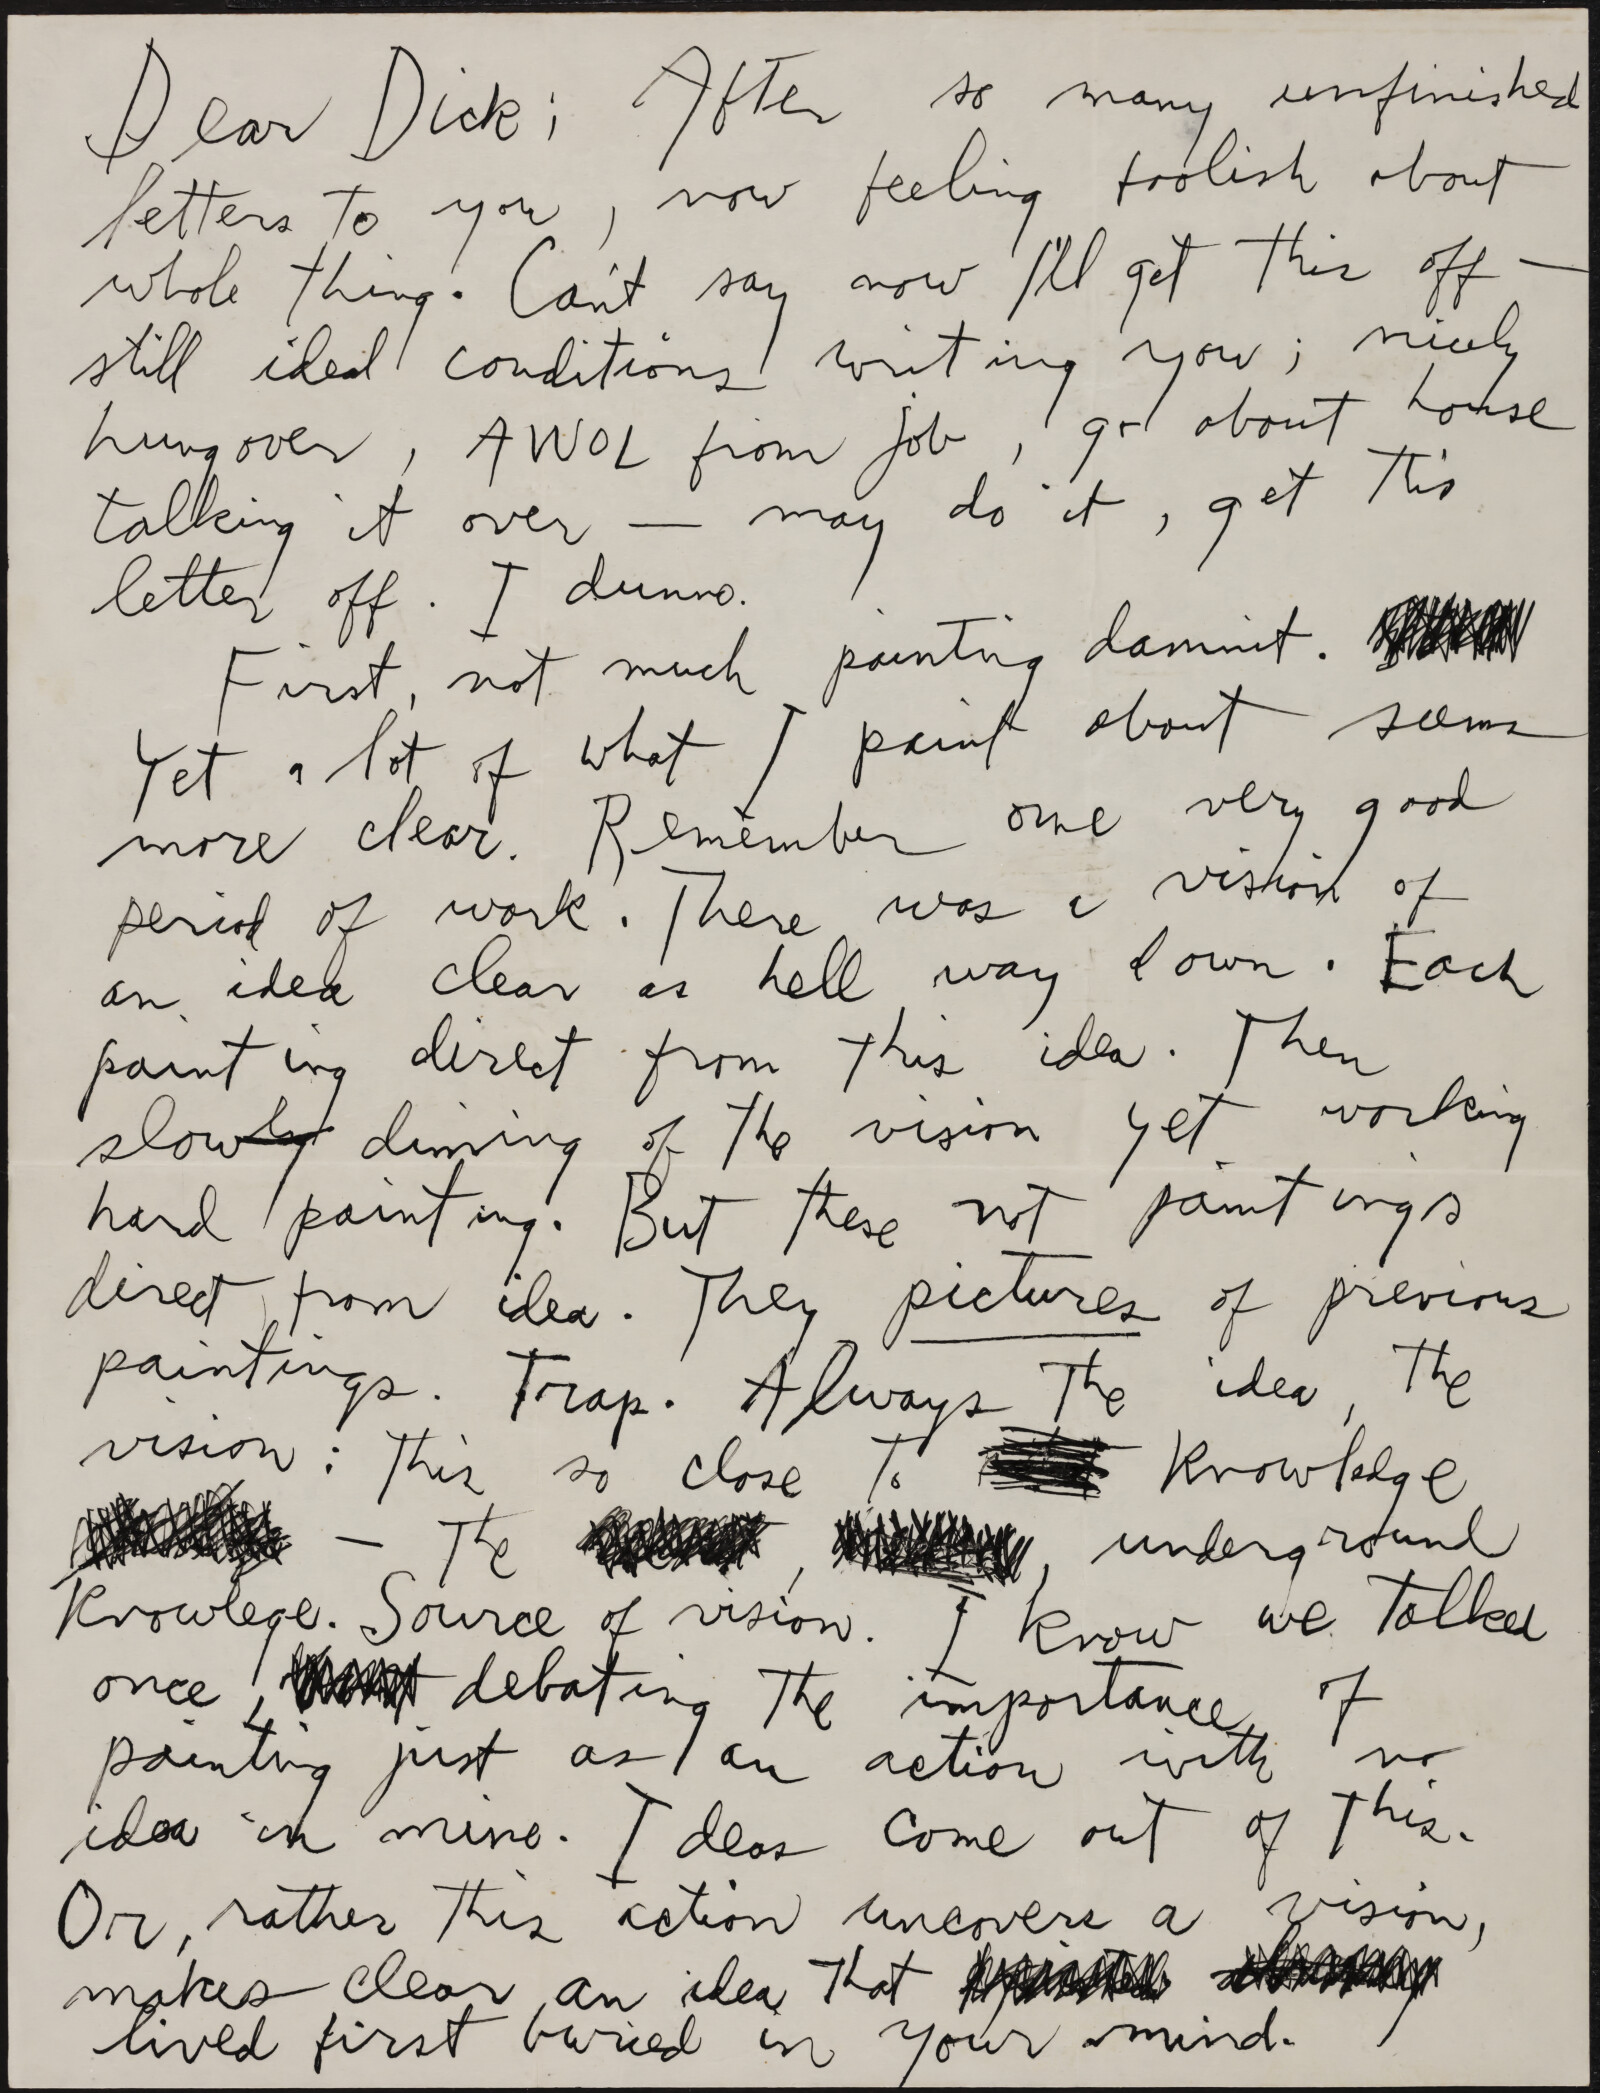 Dear Dick; After so many unfinished
letters to you, now feeling foolish about
whole thing. Can't say now I'll get this off —
still ideal conditions writing you; nicely
hungover, AWOL from job, go about house
talking it over — may do it, get this
letter off. I dunno.
First, not much painting damnit.
Yet a lot of what I paint about seems
more clear. Remember one very good
period of work. There was a vision of
an idea clear as hell way down. Each
painting direct from this idea. Then
slow diming of the vision yet working
hard painting. But these not paintings
direct from idea. They pictures of previous
paintings. Trap. Always the idea, the
vision: this so close to knowledge
— the , , underground
knowlege. Source of vision. I know we talked
once, debating the importance of
painting just as an action with no
idea in mine. Ideas come out of this.
Or, rather this action uncovers a vision,
makes clear an idea that
lived first buried in your mind.